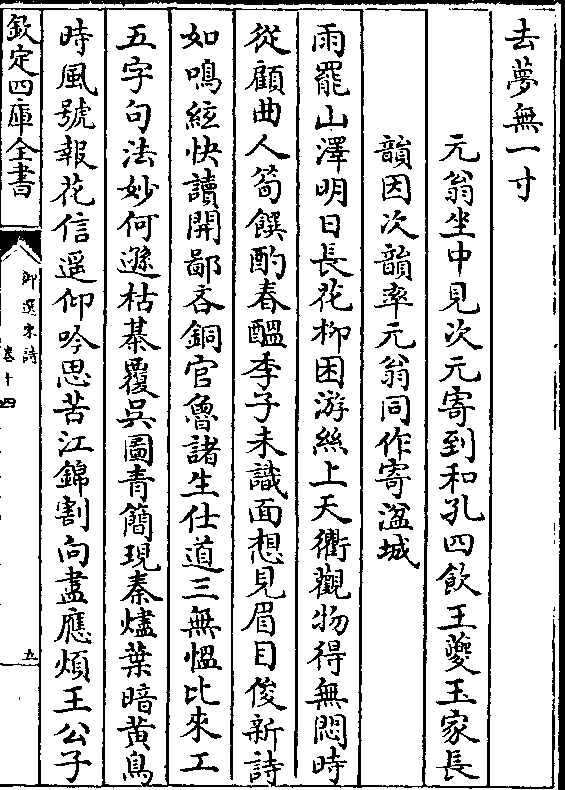 去夢無一寸
元翁坐中見次元寄到和孔四飲王夔玉家長
韻因次韻率元翁同作寄湓城
雨罷山澤明日長花柳困游絲上天衢觀物得無悶時
從顧曲人荀饌酌春醞季子未識面想見眉目俊新詩
如鳴絃快讀開鄙吝銅官魯諸生仕道三無愠比來工
五字句法妙何遜枯棊覆吳圖青簡現秦燼葉暗黃鳥
時風號報花信遥仰吟思苦江錦割向盡應煩王公子
欽定四庫全書
御選宋詩
卷十四
五